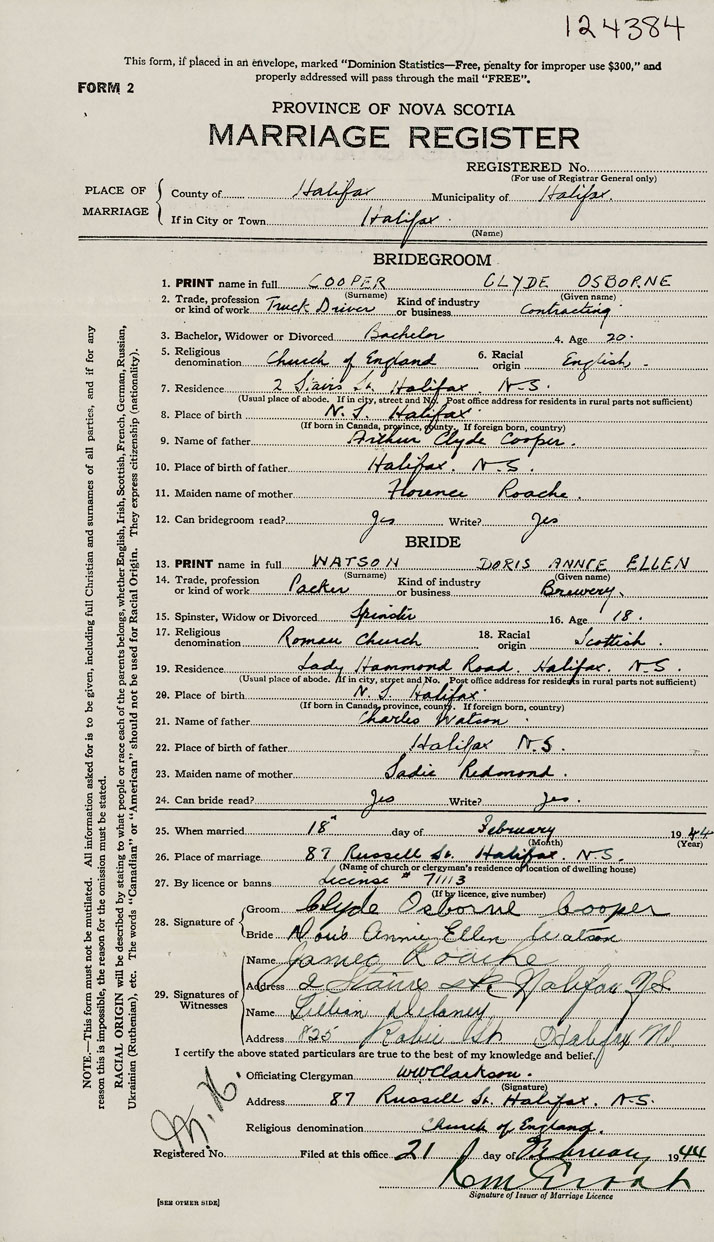 124384
This form, if placed in an envelope, marked "Dominion Statistics—Free, penalty for improper use $300," and
properly addressed will pass through the mail "FREE".
FORM 2
PROVINCE OF NOVA SCOTIA
MARRIAGE REGISTER
REGISTERED No.
(For use of Registrar General only)
PLACE OF MARRIAGE
County of Halifax Municipality of Halifax.
If in City or Town Halifax.
(Name)
BRIDEGROOM
1. PRINT name in full COOPER CLYDE OSBORNE
(Surname) (Given name)
2. Trade, profession or kind of work Truck Driver Kind of industry or business Contracting
3. Bachelor, Widower or Divorced Bachelor 4. Age 20.
5. Religious denomination Church of England 6. Racial origin English.
7. Residence 2 Stairs St. Halifax N-S.
(Usual place of abode. If in city, street and No. Post office address for residents in rural parts not sufficient)
8. Place of birth N.S. Halifax
(If born in Canada, province, county. If foreign born, country)
9. Name of father Arthur Clyde Cooper.
10. Place of birth of father Halifax. N-S.
11. Maiden name of mother Florence Roache.
12. Can bridegroom read? Yes Write? Yes
BRIDE
13. PRINT name in full WATSON DORIS ANNIE ELLEN
(Surname) (Given name)
14. Trade, profession or kind of work Packer Kind of industry or business Brewery.
15. Spinster, Widow or Divorced Spinster 16. Age 18.
17. Religious denomination Roman Church 18. Racial origin Scottish.
19. Residence Lady Hammond Road. Halifax. N-S.
(Usual place of abode. If in city, street and No. Post office address for residents in rural parts not sufficient)
20. Place of birth N.S. Halifax
(If born in Canada, province, county. If foreign born, country)
21. Name of father Charles Watson.
22. Place of birth of father Halifax N.S.
23. Maiden name of mother Sadie Redmond.
24. Can bride read? Yes Write? Yes.
25. When married 18th day of February 1944
(Month) (Year)
26. Place of marriage 87 Russell St. Halifax. N.S.
(Name of church or clergyman's residence or location of dwelling house)
27. By licence or banns License # 71113
(If by licence, give number)
28. Signature of
Groom Clyde Osborne Cooper
Bride Doris Annie Ellen Watson
29. Signatures of Witnesses
Name James Roache
Address 2 Stairs St. Halifax NS
Name Lillian Delaney
Address 825 Robie St Halifax NS
I certify the above stated particulars are true to the best of my knowledge and belief.
Officiating Clergyman WW Clarkson.
(Signature)
Address 87 Russell St. Halifax. N-S.
Religious denomination Church of England.
Registered No. Filed at this office 21 day of February 1944
Signature of Issuer of Marriage Licence
[SEE OTHER SIDE]
NOTE.—This form must not be mutilated. All information asked for is to be given, including full Christian and surnames of all parties, and if for any
reason this is impossible, the reason for the omission must be stated.
RACIAL ORIGIN will be described by stating to what people or race each of the parents belongs, whether English, Irish, Scottish, French, German, Russian,
Ukrainian (Ruthenian), etc. The words "Canadian" or "American" should not be used for Racial Origin. They express citizenship (nationality).